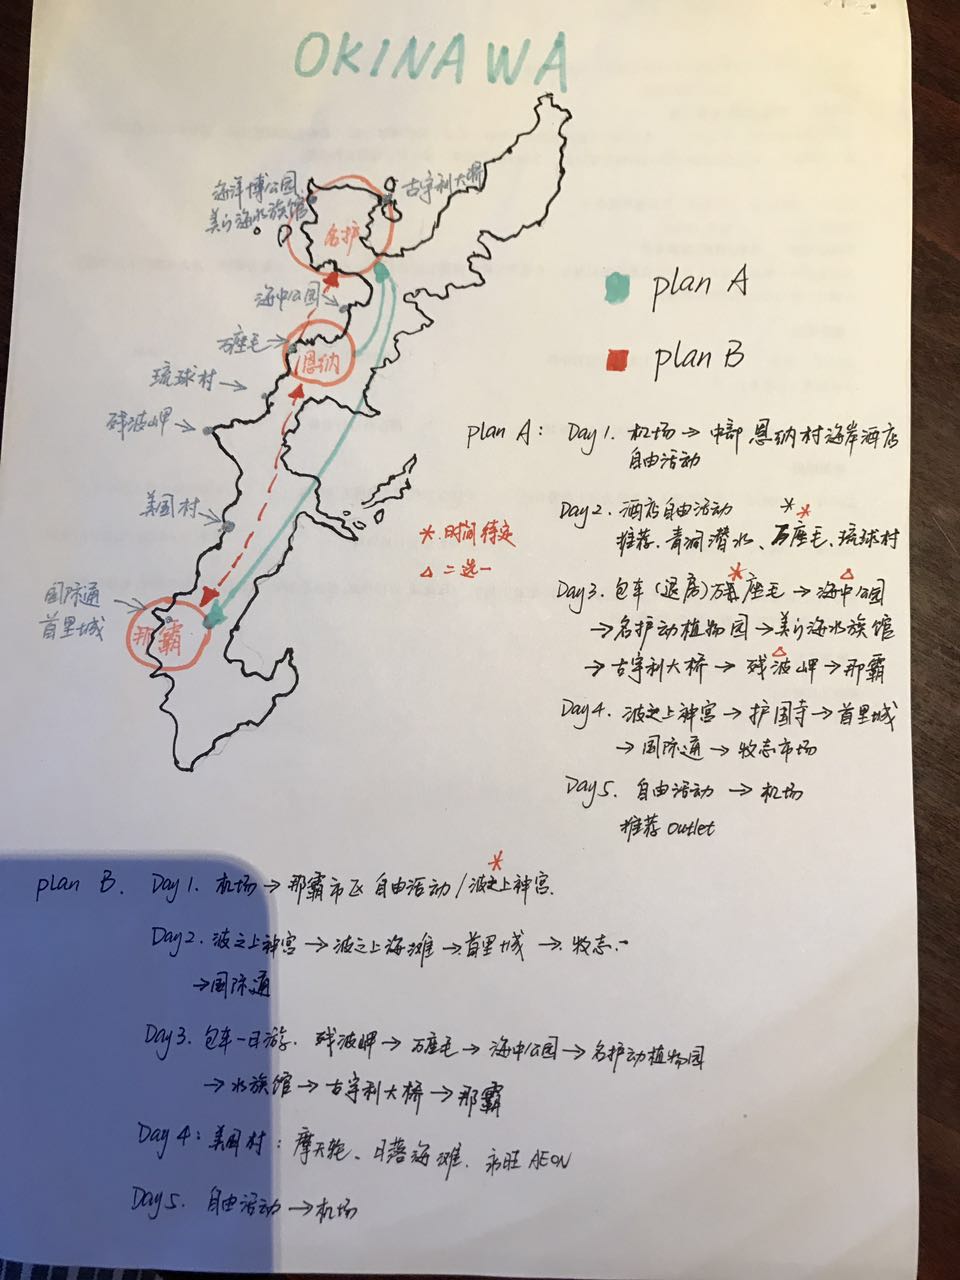 OKINAWA
海洋博公园
美ら海水族馆
古宇利大桥
名护
海中公园
万座毛
恩纳
琉球村
残波岬
美国村
国际通
首里城
那霸
plan A
plan B
* 时间待定
△ 二选一
plan A: Day1. 机场→中部恩纳村海岸酒店
自由活动
Day2. 酒店自由活动
推荐. 青洞潜水、万座毛、琉球村
Day3. 包车(退房)万座毛→海中公园
→名护动植物园→美ら海水族馆
→古宇利大桥→残波岬→那霸
Day4. 波之上神宫→护国寺→首里城
→国际通→牧志市场
Day5. 自由活动→机场
推荐 outlet
plan B. Day1. 机场→那霸市区 自由活动/波之上神宫.
Day2. 波之上神宫→波之上海滩→首里城→牧志..
→国际通
Day3. 包车一日游. 残波岬→万座毛→海中公园→名护动植物园
→水族馆→古宇利大桥→那霸
Day4: 美国村: 摩天轮、日落海滩. 永旺AEON
Day5. 自由活动→机场